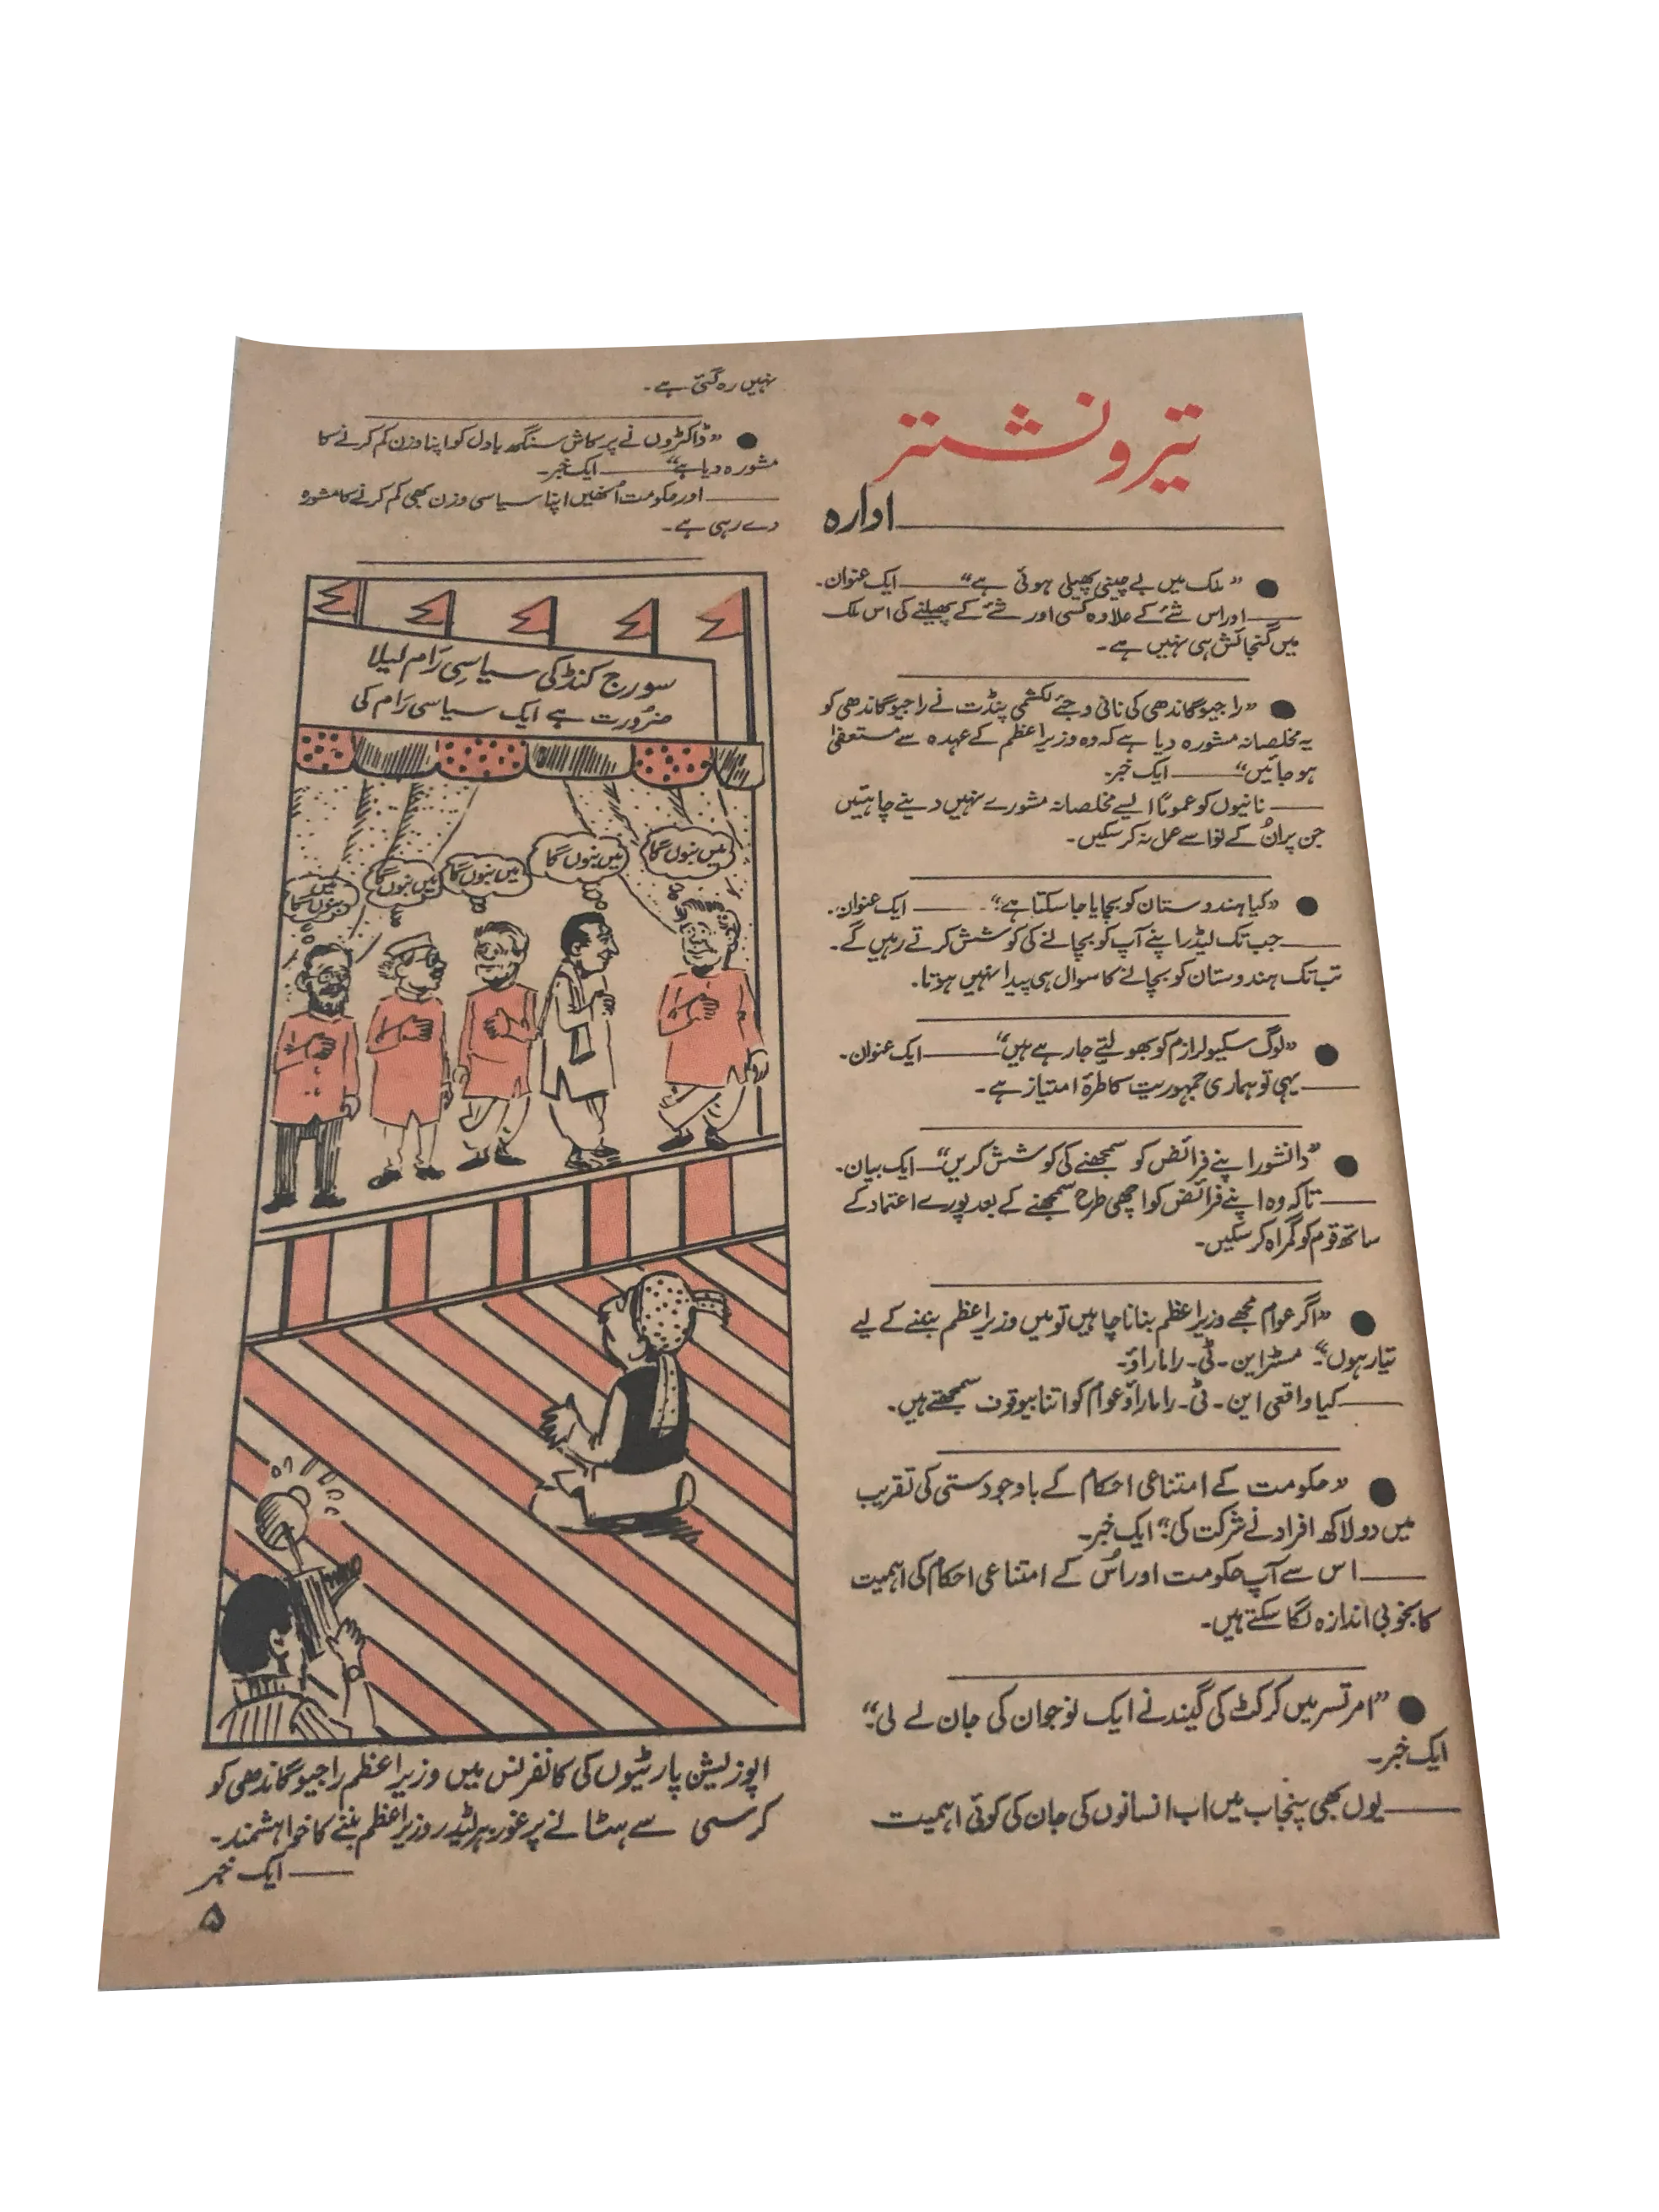 تیر و نشتر
ادارہ
● ”ملک میں بے چینی پھیلی ہوئی ہے“ —— ایک عنوان۔
—— اور اس شئے کے علاوہ کسی اور شئے کے پھیلنے کی اس ملک
میں گنجائش ہی نہیں ہے۔
● ”راجیو گاندھی کی نانی وجئے لکشمی پنڈت نے راجیو گاندھی کو
یہ مخلصانہ مشورہ دیا ہے کہ وہ وزیراعظم کے عہدہ سے مستعفیٰ
ہو جائیں“ —— ایک خبر۔
—— نانیوں کو عموماً ایسے مخلصانہ مشورے نہیں دینے چاہئیں
جن پر اُن کے نواسے عمل نہ کر سکیں۔
● ”کیا ہندوستان کو بچایا جا سکتا ہے؟“ —— ایک عنوان۔
—— جب تک لیڈر اپنے آپ کو بچانے کی کوشش کرتے رہیں گے۔
تب تک ہندوستان کو بچانے کا سوال ہی پیدا نہیں ہوتا۔
● ”لوگ سیکیولرازم کو بھولتے جا رہے ہیں“ —— ایک عنوان۔
—— یہی تو ہماری جمہوریت کا طرۂ امتیاز ہے۔
● ”دانشور اپنے فرائض کو سمجھنے کی کوشش کریں“ — ایک بیان۔
—— تاکہ وہ اپنے فرائض کو اچھی طرح سمجھنے کے بعد پورے اعتماد کے
ساتھ قوم کو گمراہ کر سکیں۔
● ”اگر عوام مجھے وزیراعظم بنانا چاہیں تو میں وزیراعظم بننے کے لیے
تیار ہوں“۔ مسٹر این۔ٹی۔راماراؤ۔
—— کیا واقعی این۔ٹی۔راماراؤ عوام کو اتنا بیوقوف سمجھتے ہیں۔
● ”حکومت کے امتناعی احکام کے باوجود ستی کی تقریب
میں دو لاکھ افراد نے شرکت کی“۔ ایک خبر۔
—— اس سے آپ حکومت اور اُس کے امتناعی احکام کی اہمیت
کا بخوبی اندازہ لگا سکتے ہیں۔
● ”امرتسر میں کرکٹ کی گیند نے ایک نوجوان کی جان لے لی“۔
ایک خبر۔
—— یوں بھی پنجاب میں اب انسانوں کی جان کی کوئی اہمیت
نہیں رہ گئی ہے۔
● ”ڈاکٹروں نے پرکاش سنگھ بادل کو اپنا وزن کم کرنے کا
مشورہ دیا ہے“ —— ایک خبر۔
—— اور حکومت اُنھیں اپنا سیاسی وزن بھی کم کرنے کا مشورہ
دے رہی ہے۔
سورج کنڈ کی سیاسی رَام لیلا
ضرُورت ہے ایک سیاسی رَام کی
میں بنوں گا
میں بنوں گا
میں بنوں گا
میں بنوں گا
میں
بنوں گا
اپوزیشن پارٹیوں کی کانفرنس میں وزیراعظم راجیو گاندھی کو
کرسی سے ہٹانے پر غور۔ ہر لیڈر وزیراعظم بننے کا خواہشمند۔
—— ایک خبر
۵